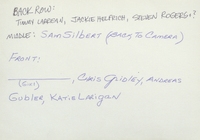 BACK ROW:
TIMMY LARDEAN, JACKIE HELFRICH, STEVEN ROGERS, ?
MIDDLE: SAM SILBERT (BACK TO CAMERA)
FRONT:
, CHRIS GRIDLEY, ANDREAS
(GIRL)
GUDLER, KATIE LARIGAN